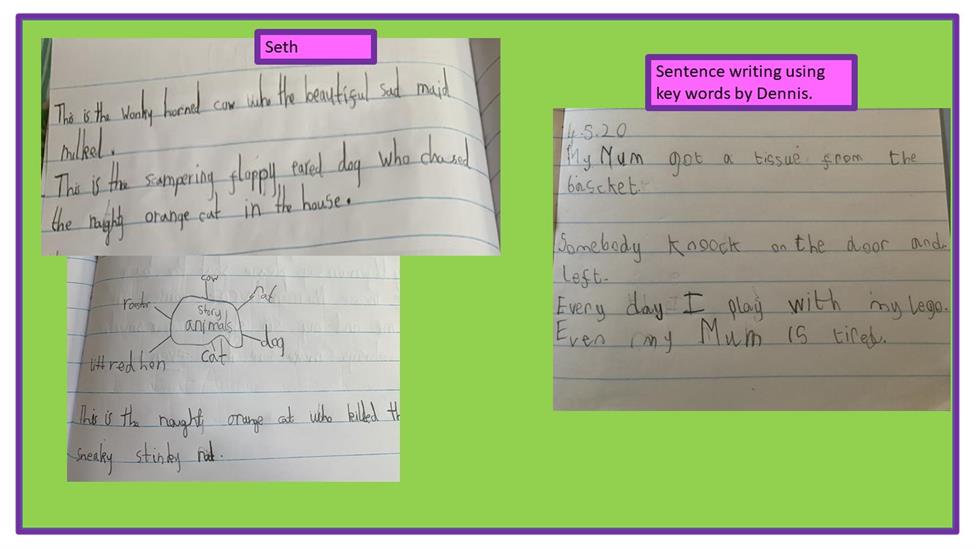 Seth
This is the wonky horned cow who the beautiful sad maid
milked.
This is the scampering floppy eared dog who chased
the naughty orange cat in the house.
cow
rat
rooster
story
animals
dog
cat
red hen
This is the naughty orange cat who killed th
sneaky stinky rat.
Sentence writing using
key words by Dennis.
4.5.20
My Mum got a tissue from the
bascket.
Somebody knoock on the door and
left.
Every day I play with my lego.
Even my Mum is tired.